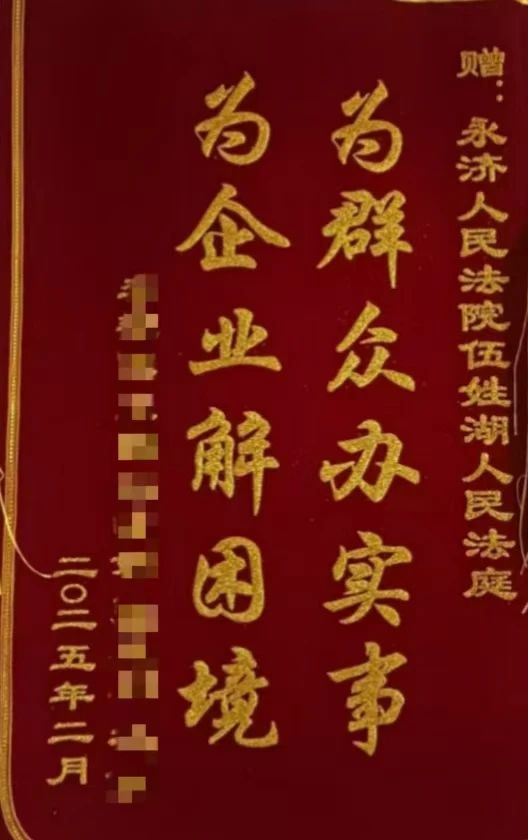 赠：永济人民法院伍姓湖人民法庭
为群众办实事
为企业解困境
二〇二五年二月